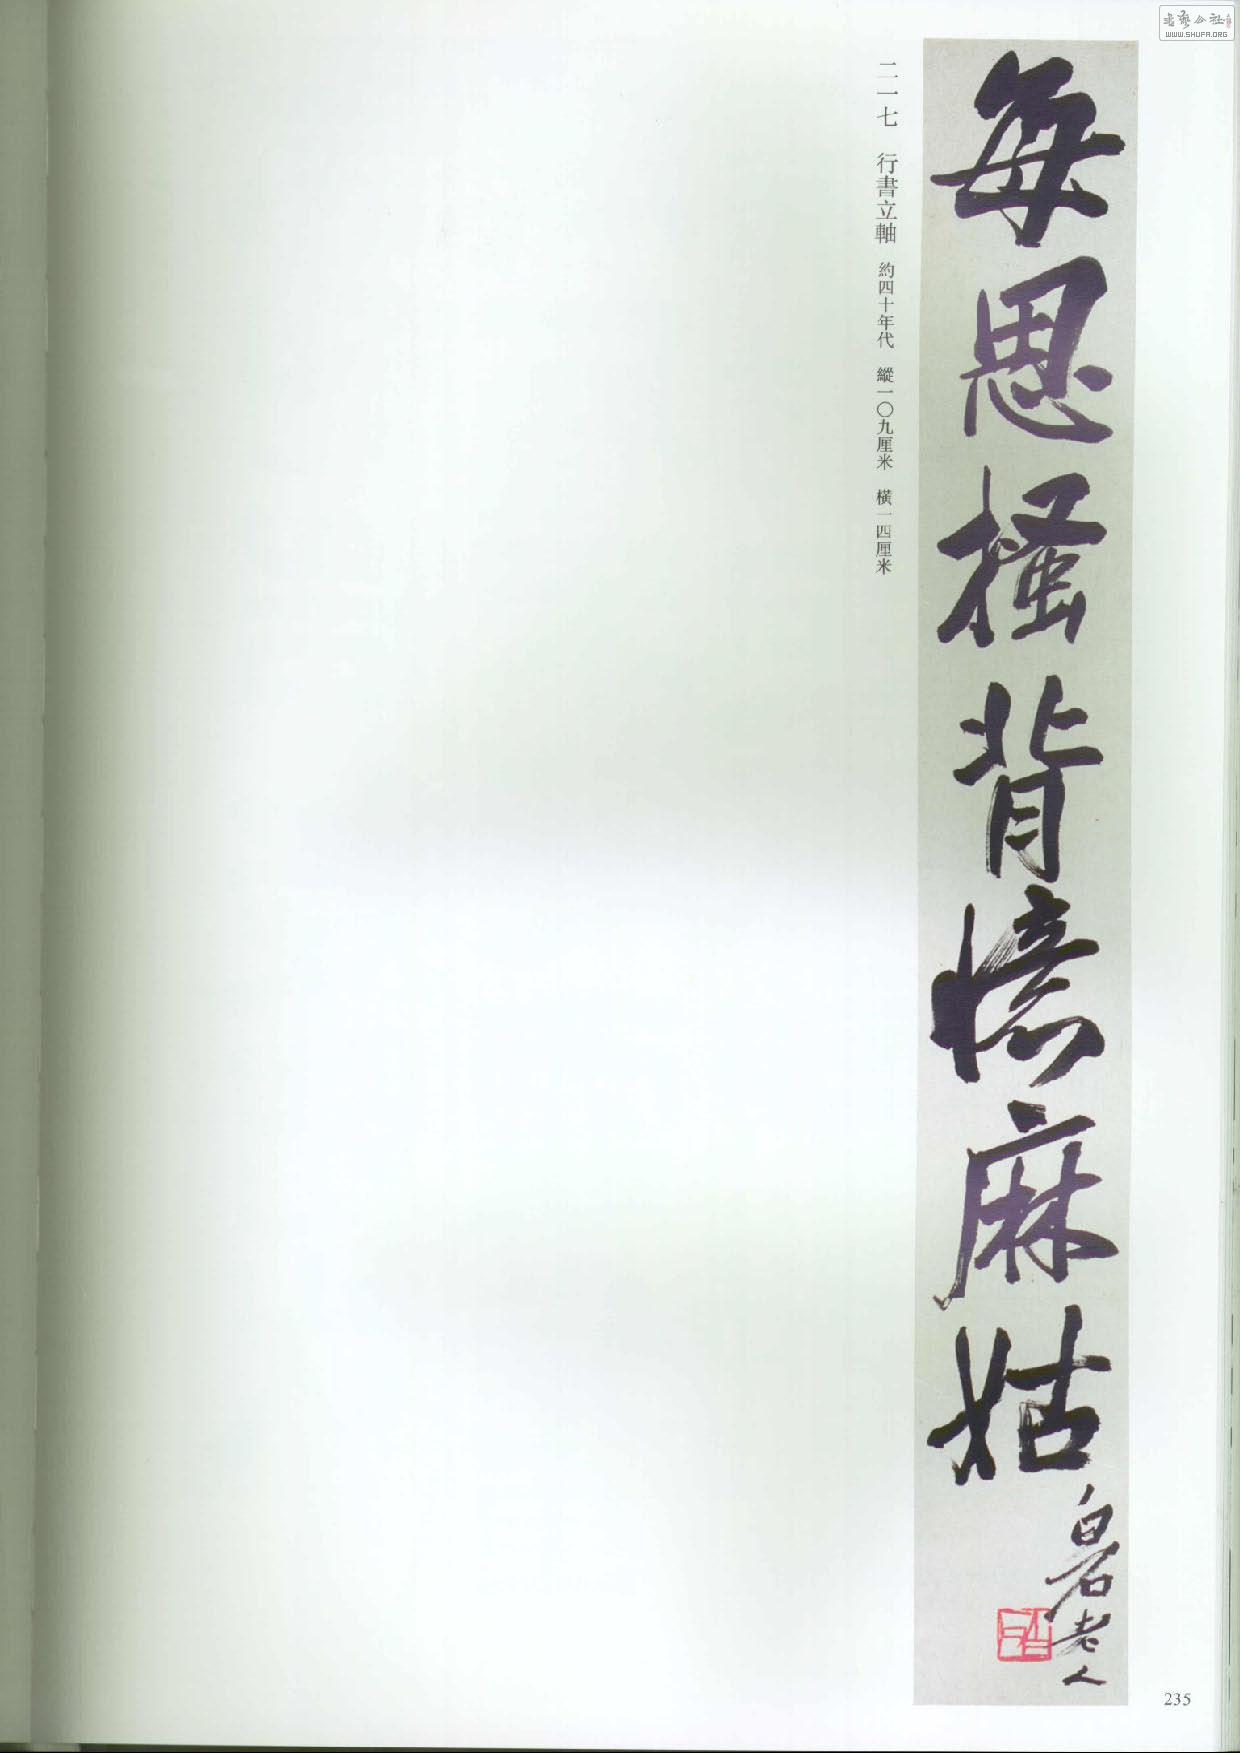 每思搔背憶麻姑
白石老人
二一七 行書立軸 約四十年代 縱一〇九厘米 橫一四厘米
235
書藝公社
WWW.SHUFA.ORG